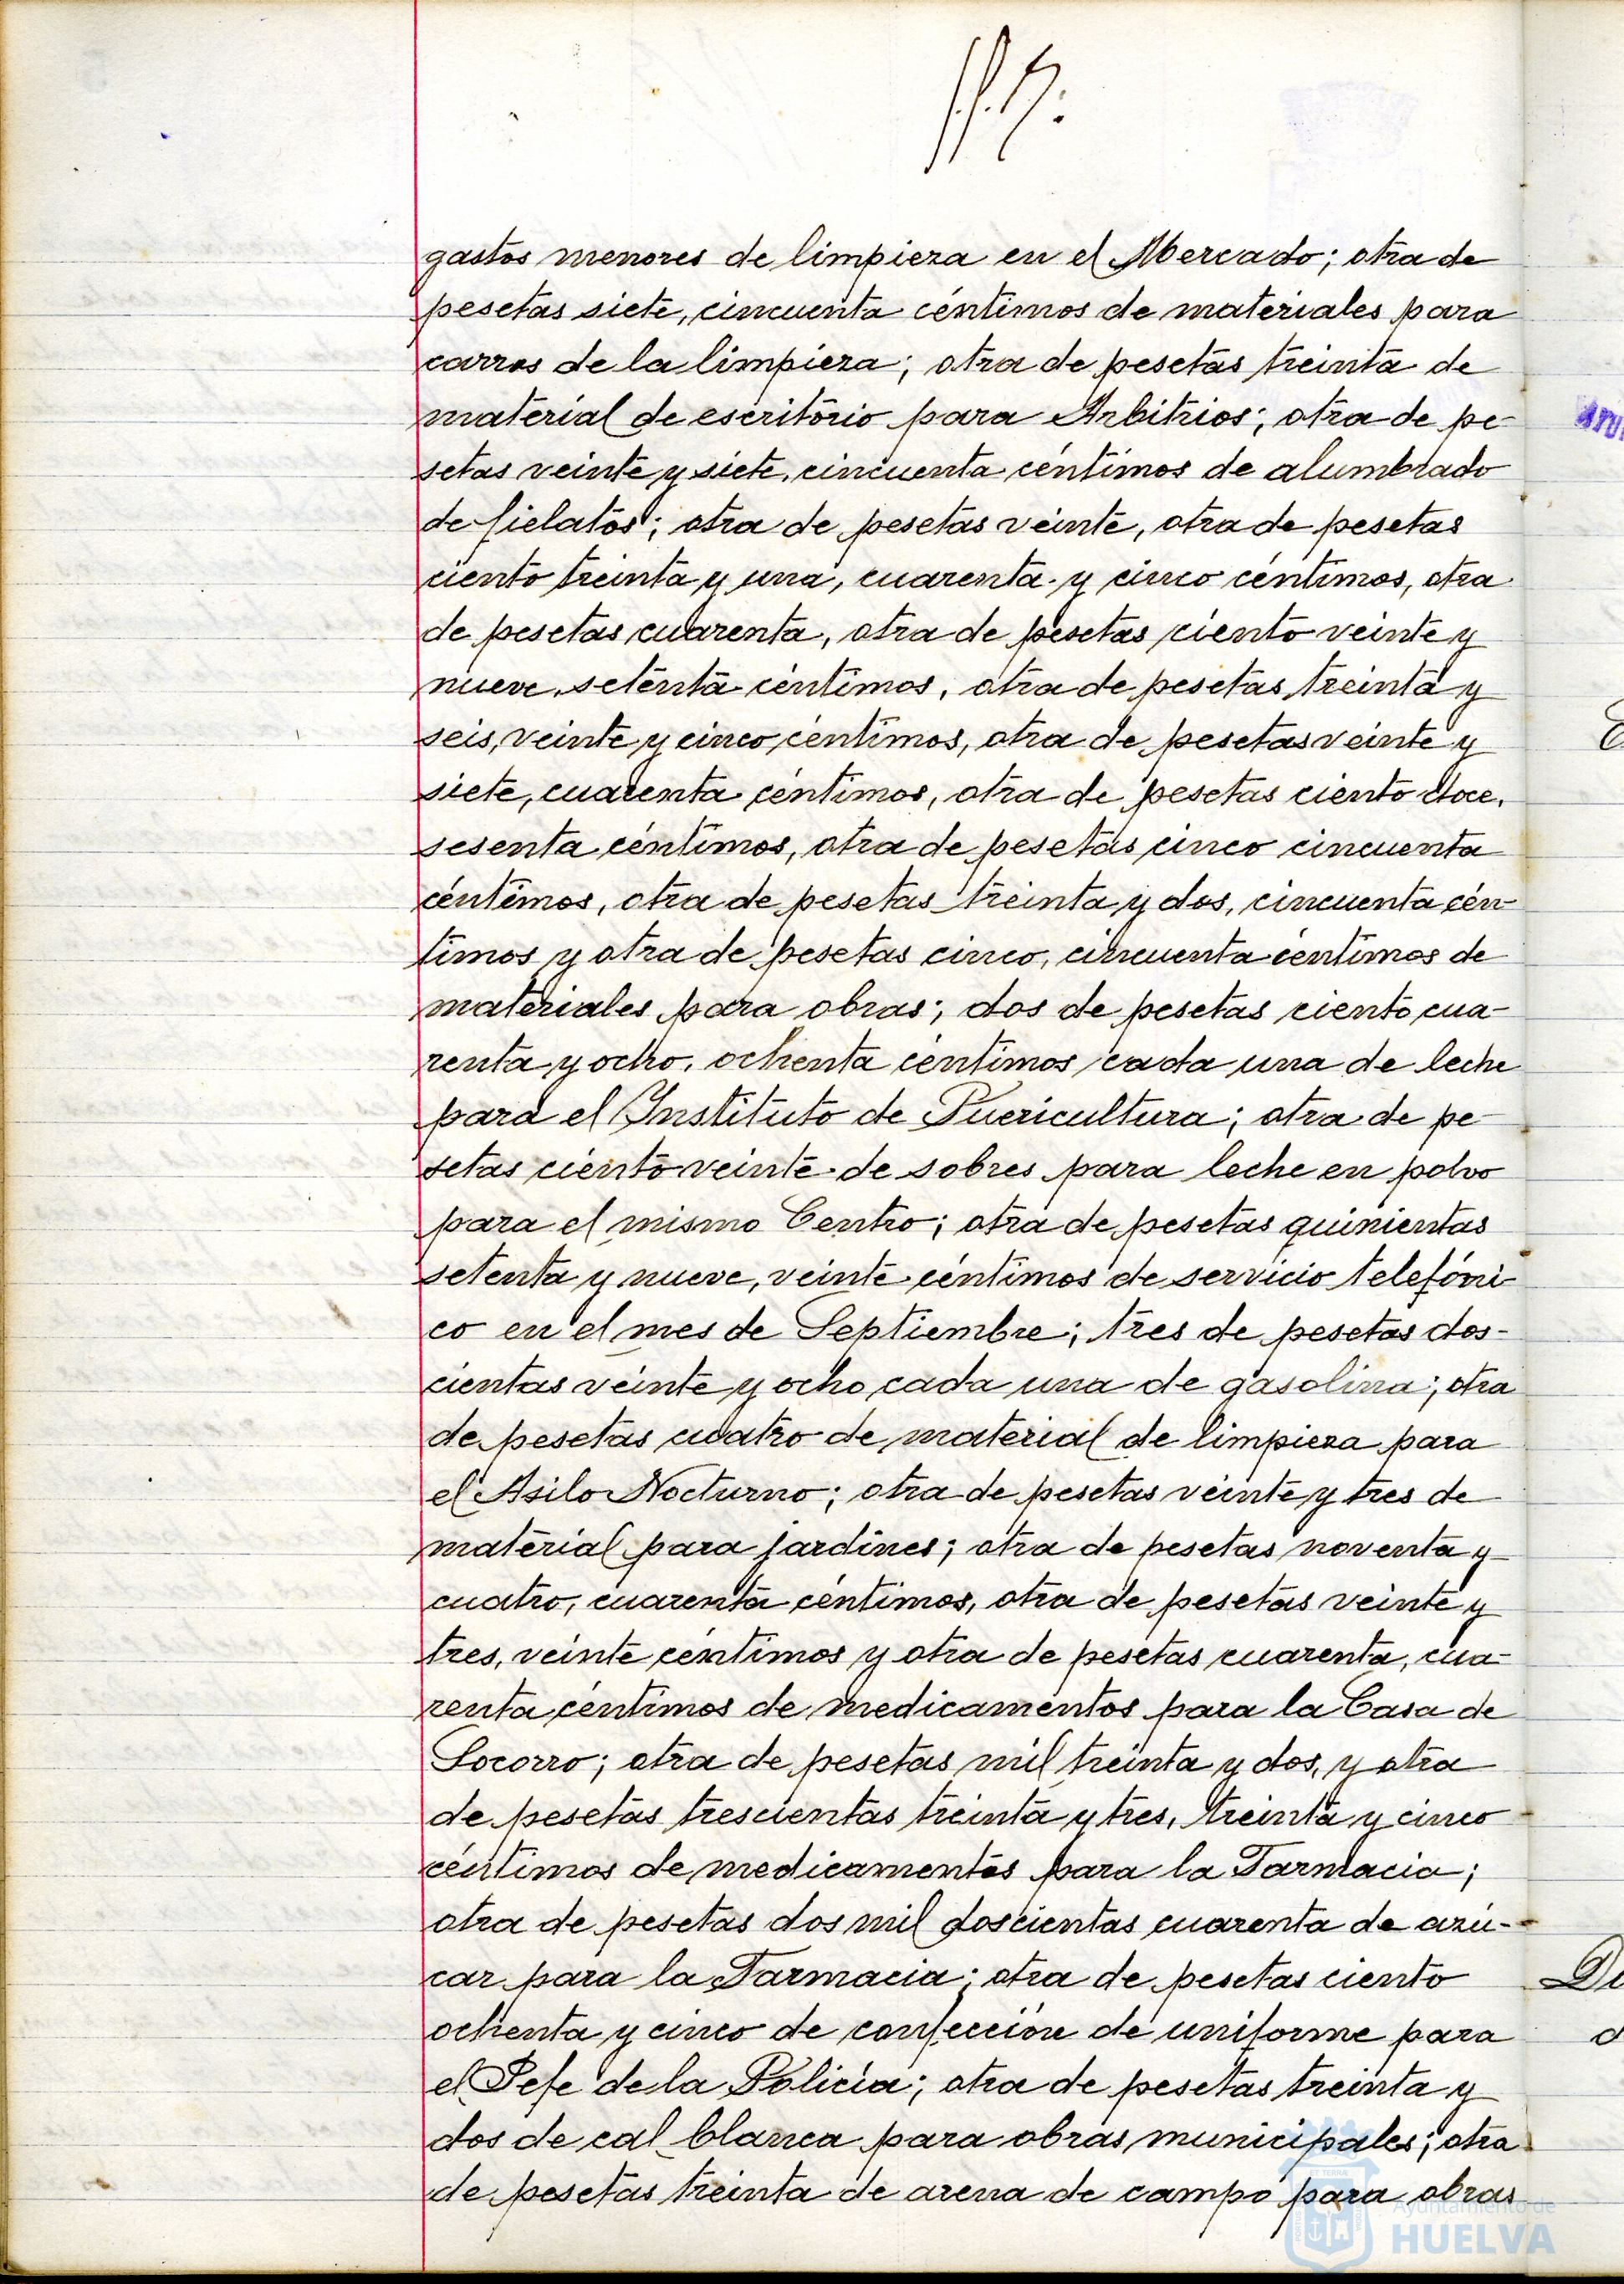 gastos menores de limpieza en el Mercado; otra de
pesetas siete, cincuenta céntimos de materiales para
carros de la limpieza; otra de pesetas treinta de
material de escritorio para Arbitrios; otra de pe-
setas veinte y siete, cincuenta céntimos de alumbrado
de fielatos; otra de pesetas veinte, otra de pesetas
ciento treinta y una, cuarenta y cinco céntimos, otra
de pesetas cuarenta, otra de pesetas ciento veinte y
nueve, setenta céntimos, otra de pesetas treinta y
seis, veinte y cinco céntimos, otra de pesetas veinte y
siete, cuarenta céntimos, otra de pesetas ciento doce,
sesenta céntimos, otra de pesetas cinco cincuenta
céntimos, otra de pesetas treinta y dos, cincuenta cén-
timos y otra de pesetas cinco, cincuenta céntimos de
materiales para obras; dos de pesetas ciento cua-
renta y ocho, ochenta céntimos cada una de leche
para el Instituto de Puericultura; otra de pe-
setas ciento veinte de sobres para leche en polvo
para el mismo Centro; otra de pesetas quinientas
setenta y nueve, veinte céntimos de servicio telefóni-
co en el mes de Septiembre; tres de pesetas dos-
cientas veinte y ocho cada una de gasolina; otra
de pesetas cuatro de material de limpieza para
el Asilo Nocturno; otra de pesetas veinte y tres de
material para jardines; otra de pesetas noventa y
cuatro, cuarenta céntimos, otra de pesetas veinte y
tres, veinte céntimos y otra de pesetas cuarenta, cua-
renta céntimos de medicamentos para la Casa de
Socorro; otra de pesetas mil treinta y dos, y otra
de pesetas trescientas treinta y tres, treinta y cinco
céntimos de medicamentos para la Farmacia;
otra de pesetas dos mil doscientas cuarenta de azú-
car para la Farmacia; otra de pesetas ciento
ochenta y cinco de confección de uniforme para
el Jefe de la Policía; otra de pesetas treinta y
dos de cal blanca para obras municipales; otra
de pesetas treinta de arena de campo para obras
Ayuntamiento de
HUELVA